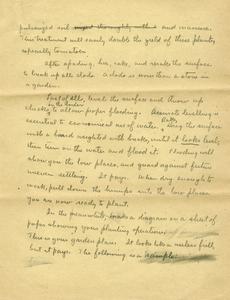 pulverized soil and manure.
This treatment will easily double the yield of these plants,
especially tomatoes.
After spading, hoe, rake, and rerake the surface
to break up all clods. A clod is more than a stone in
a garden.
First of all, level the surface and throw up
checks in the garden to allow proper flooding. Accurate levelling is
essential to convenient use of water. Drag the surface
with a board weighted with bricks, until it looks level;
then turn on the water and flood it. Flooding will
show you the low places, and guard against future
uneven settling. It pays. When dry enough to
work, pull down the humps into the low places.
You are now ready to plant.
In the meanwhile, make a diagram on a sheet of
paper showing your planting operations.
This is your garden plan. It looks like a useless frill,
but it pays. The following is a sample: